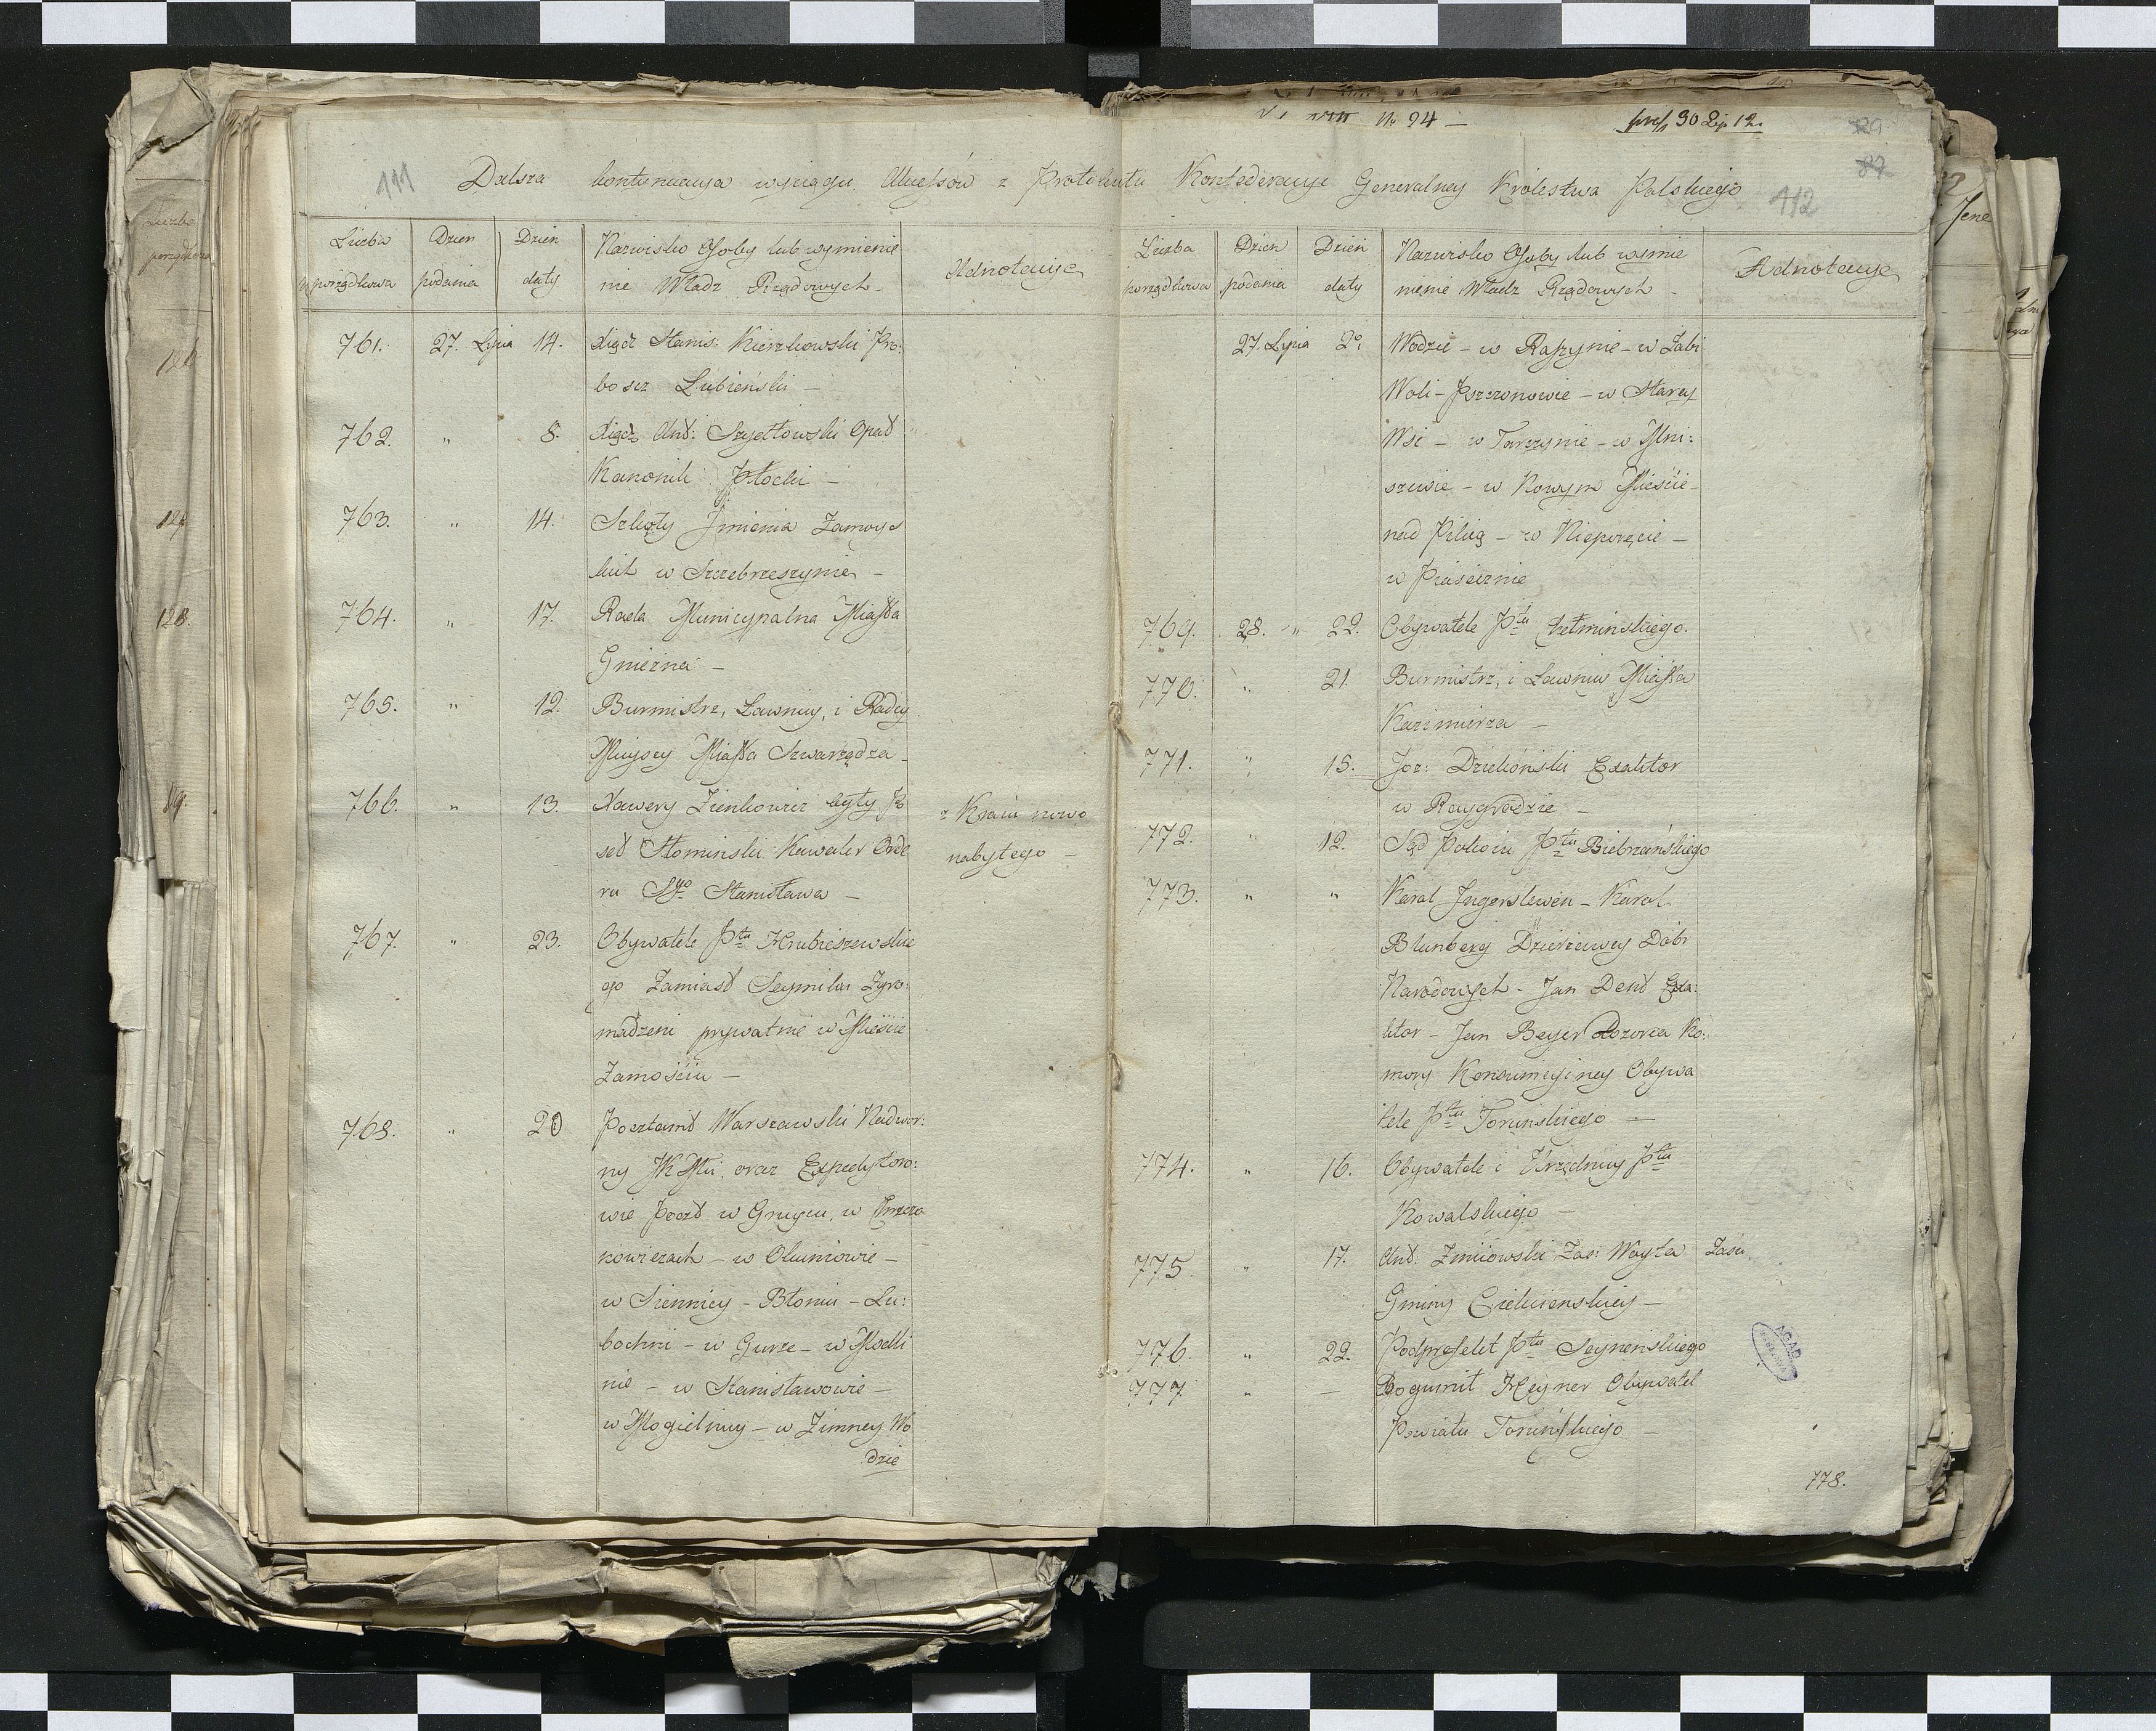 № 94 —
pres 30 Lip 12.
129
87
111
112
Dalsza kontynuacya wyciągu Akcessów z Protokułu Konfederacyi Generalney Królestwa Polskiego
Liczba porządkowa | Dzien podania | Dzien daty | Nazwisko Osoby lub wymienie
nie Władz Rządowych — | Adnotacye
761. 27. Lipca 14. Xiądz Stanis: Kierzkowski Pro:
boszcz Lubieński —
762. " 8. Xiądz And: Szyettowski Opad
Kanonik Płocki —
763. " 14. Szkoły Jmienia Zamoys
kich w Szczebrzeszynie —
764. " 17. Rada Municypalna Miasta
Gniezna —
765. " 12. Burmistrz, Ławnicy, i Radcy
Mieyscy Miasta Szwarzędza —
766. " 13. Xawery Zienkowicz były Po
seł Słonimski Kawaler Orde
ru Sgo Stanisława —
z Kraiu nowo
nabytego —
767. " 23. Obywatele Ptu Hrubieszowskie
go Zamiast Seymiku Zgro:
madzeni prywatnie w Mieście
Zamościu —
768. " 20 Pocztamt Warszawski Nadwor:
ny JKMci oraz Expedytoro:
wie Poczt w Gruycu, w
kowicach — w Okuniowie —
w Siennicy — Błoniu — Lu:
bochni — w Gurze — w Modli
nie — w Stanisławowie —
w Mogielnicy — w Zimney Wo
dzie
Liczba porządkowa | Dzien podania | Dzien daty | Nazwisko Osoby lub wymie
nienie Władz Rządowych — | Adnotacye
27. Lipca 20. Wodzie — w Raszynie — w Żabi
Woli — Pszczonowie — w Starey
Wsi — w Tarczynie — w Mni:
szewie — w Nowym Mieście —
nad Pilicą — w Nieporęcie —
w Piasecznie
769. 28. " 22. Obywatele Ptu Chełmińskiego.
770. " 21. Burmistrz, i Ławnicy Miasta
Kazimierza —
771. " 15. Joz: Dzieliński Exaktor
w Raygrodzie —
772. " 12. Sąd Pokoiu Ptu Biebrzańskiego
773. " " Karol Jngersleweń — Karol
Blunberg Dzierżawcy Dobr
Narodowych — Jan Dent Exa:
ktor — Jan Beyer Dozorca Ko:
mory Konsumcyiney Obywa
tele Ptu Toruńskiego —
774. " 16. Obywatele i Urzędnicy Ptu
Kowalskiego —
775. " 17. And. Zmiiowski Zas: Woyta
Gminy Ciekcienskiey —
776. " 22. Podprefekt Ptu Seyneńskiego
777. " — Bogumił Heyner Obywatel
Powiatu Toruńskiego —
778.
AGAD